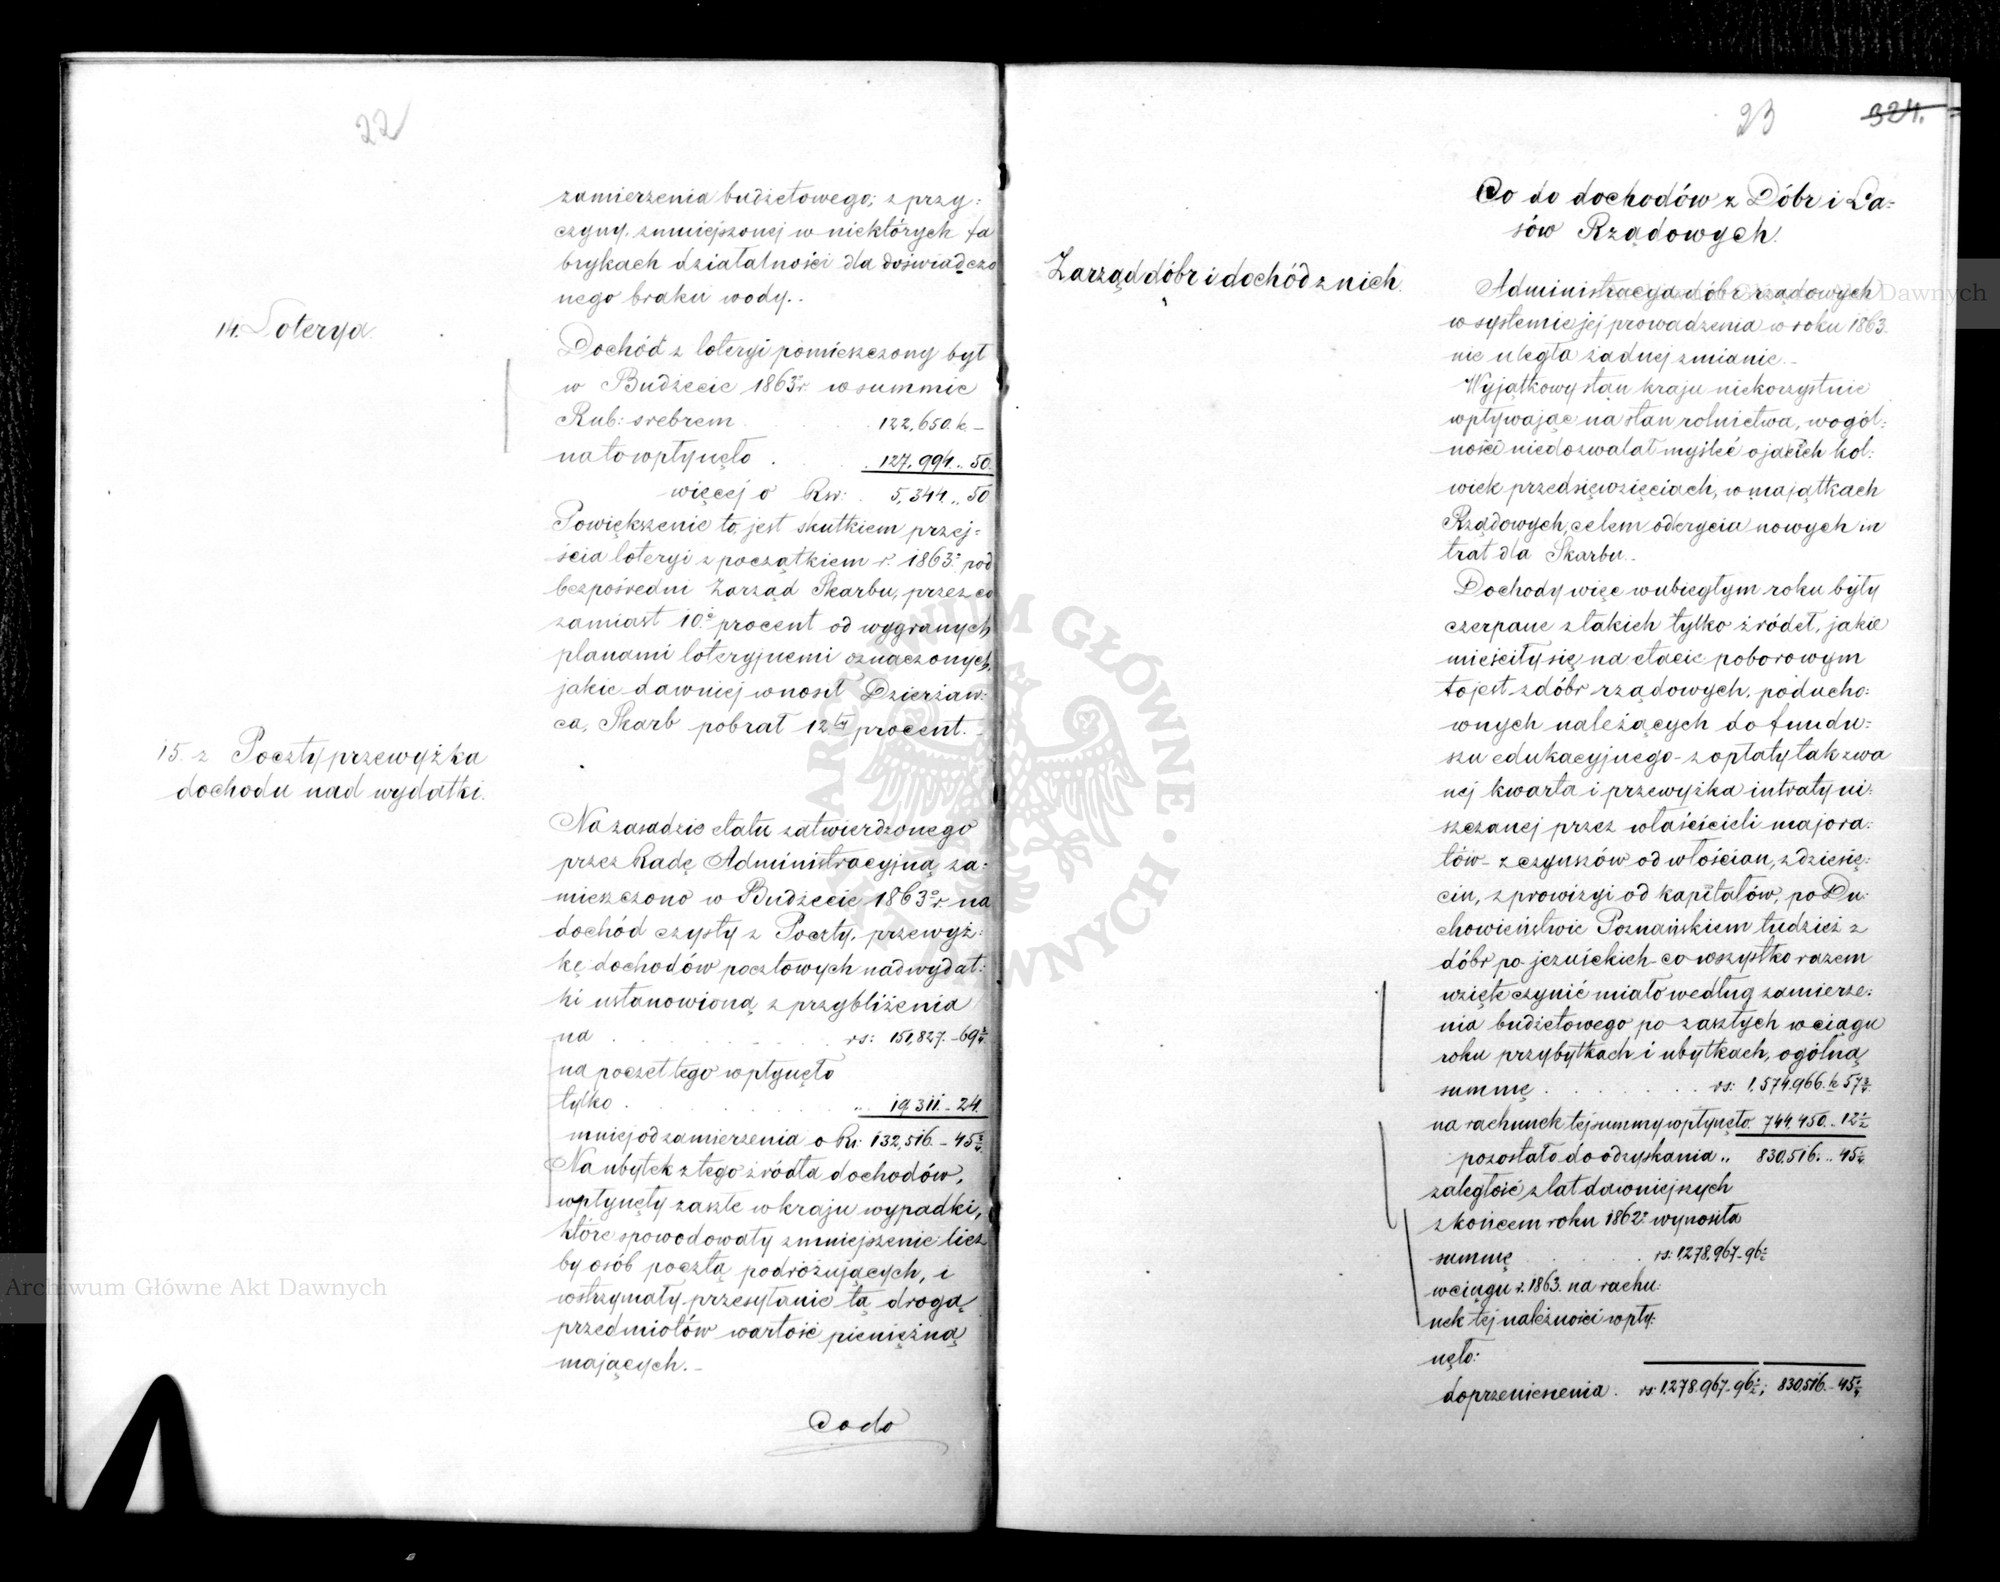 22
zamierzenia budżetowego; z przy:
czyny zmniejszonej w niektórych fa
brykach działalności dla doświadczo
nego braku wody.
14. Loterya
Dochód z loteryi pomieszczony był
w Budżecie 1863 r. w summie
Rub: srebrem 122,650. k –
na to wpłynęło 127,994. 50.
więcej o Rsr: 5,344. 50
Powiększenie to jest skutkiem przej-
ścia loteryi z początkiem r. 1863 pod
bezpośredni Zarząd Skarbu, przez co
zamiast 10 procent od wygranych
planami loteryjnemi oznaczonych,
jakie dawniej wnosił Dzierżaw:
ca, Skarb pobrał 12 procent.
15. z Poczty przewyżka
dochodu nad wydatki.
Na zasadzie etatu zatwierdzonego
przez Radę Administracyjną za:
mieszczono w Budżecie 1863 r. na
dochód czysty z Poczty, przewyż:
kę dochodów pocztowych nad wydat:
ki ustanowioną z przybliżenia
na rs: 151,827. – 69¾
na poczet tego wpłynęło
tylko 19 311. – 24.
mniej od zamierzenia o Rs: 132,516. – 45¾
Na ubytek z tego źródła dochodów,
wpłynęły zaszłe w kraju wypadki,
które spowodowały zmniejszenie licz
by osób pocztą podróżujących, i
wstrzymały przesyłanie tą drogą
przedmiotów wartość pieniężną
mających. –
Co do
23 324.
Co do dochodów z Dóbr i La:
sów Rządowych.
Zarząd dóbr i dochód z nich.
Administracya dóbr rządowych
w systemie jej prowadzenia w roku 1863
nie uległa żadnej zmianie. –
Wyjątkowy stan kraju niekorzystnie
wpływając na stan rolnictwa, w ogól:
ności niedozwalał myśleć o jakich kol:
wiek przedsięwzięciach, w majątkach
Rządowych, celem odkrycia nowych in
trat dla Skarbu. –
Dochody więc w ubiegłym roku były
czerpane z takich tylko źródeł, jakie
mieściły się na etacie poborowym
to jest z dóbr rządowych, poducho:
wnych należących do fundu:
szu edukacyjnego – z opłaty tak zwa
nej kwarta i przewyżka intraty ui:
szczanej przez właścicieli majora:
tów – z czynszów od włościan, z dziesię:
cin, z prowizyi od kapitałów, po Du:
chowieństwie Poznańskiem tudzież z
dóbr po jezuickich – co wszystko razem
wzięte czynić miało według zamierze:
nia budżetowego po zaszłych w ciągu
roku przybytkach i ubytkach, ogólną
summę rs: 1,574.966. k 57¾
na rachunek tej summy wpłynęło 744,450. „ 12½
pozostało do odzyskania „ 830,516. „ 45¼
zaległość z lat dawniejszych
z końcem roku 1862 wynosiła
summę rs: 1,278,967 – 96½
w ciągu r. 1863. na rachu:
nek tej należności wpły:
nęło:
do przeniesienia rs: 1,278.967 – 96½; 830,516. – 45¼
ARCHIWUM GŁÓWNE AKT DAWNYCH
Archiwum Główne Akt Dawnych
Archiwum Główne Akt Dawnych